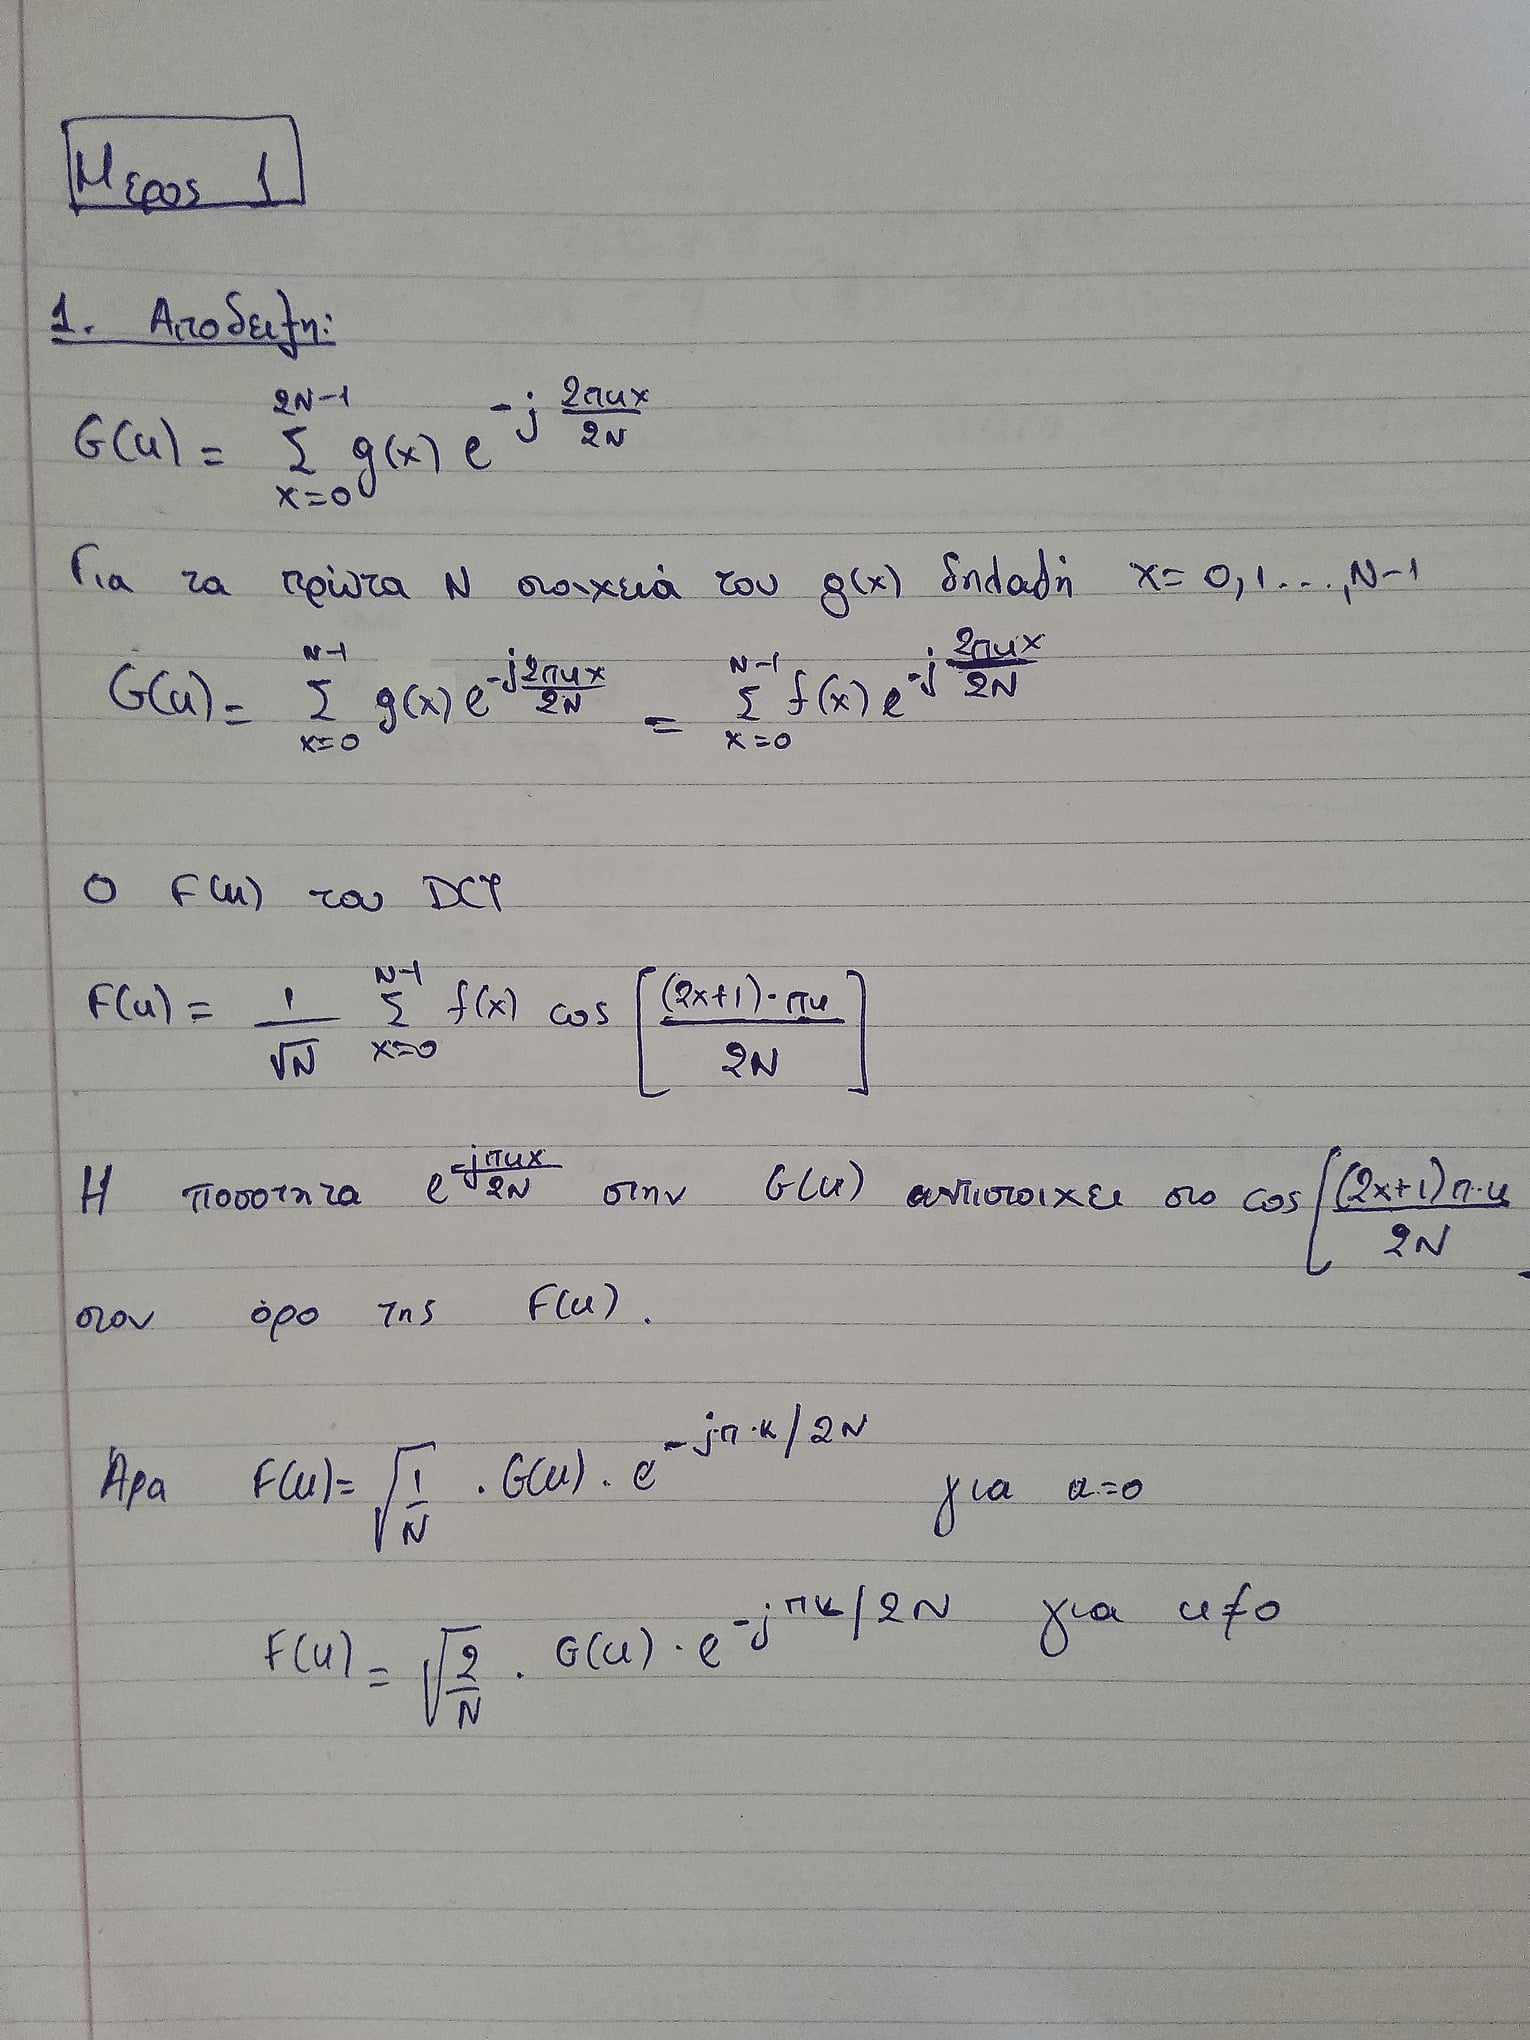 Μερος 1
1. Αποδειξη:
G(u) = Σ_{x=0}^{2N-1} g(x) e^{-j 2πux/2N}
Για τα πρώτα N στοιχειά του g(x) δηλαδή x= 0,1...,N-1
G(u) = Σ_{x=0}^{N-1} g(x) e^{-j 2πux/2N} = Σ_{x=0}^{N-1} f(x) e^{-j 2πux/2N}
Ο F(u) του DCT
F(u) = 1/√N Σ_{x=0}^{N-1} f(x) cos [(2x+1)·πu/2N]
Η ποσοτητα e^{-jπux/2N} στην G(u) αντιστοιχει στο cos [(2x+1)π·u/2N]
στον όρο της F(u).
Αρα F(u) = √(1/N) · G(u) · e^{-jπ·k/2N} για u=0
F(u) = √(2/N) · G(u) · e^{-jπk/2N} για u≠0